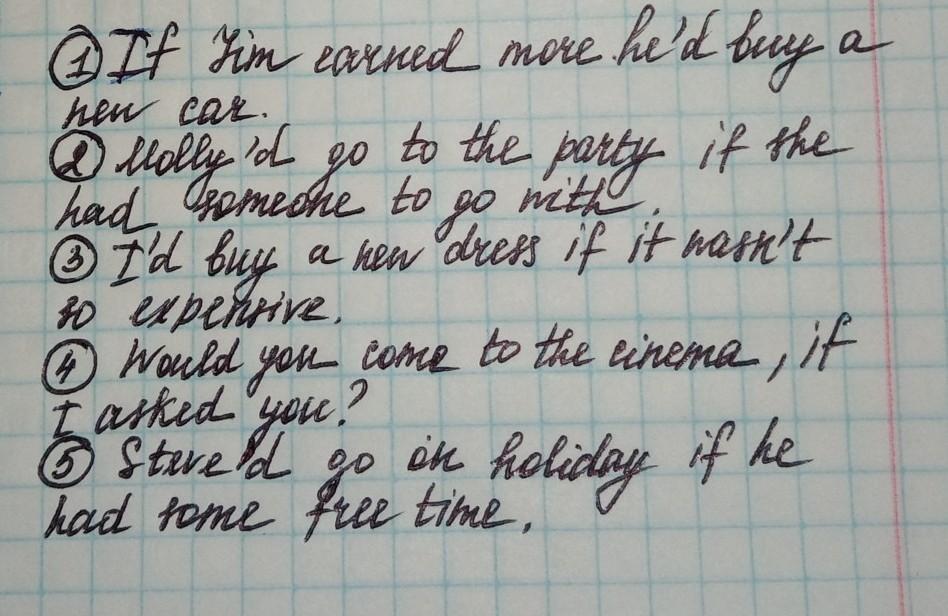 ① If Jim earned more he'd buy a
new car.
② Molly'd go to the party if she
had someone to go with.
③ I'd buy a new dress if it wasn't
so expensive.
④ Would you come to the cinema, if
I asked you?
⑤ Steve'd go on holiday if he
had some free time.